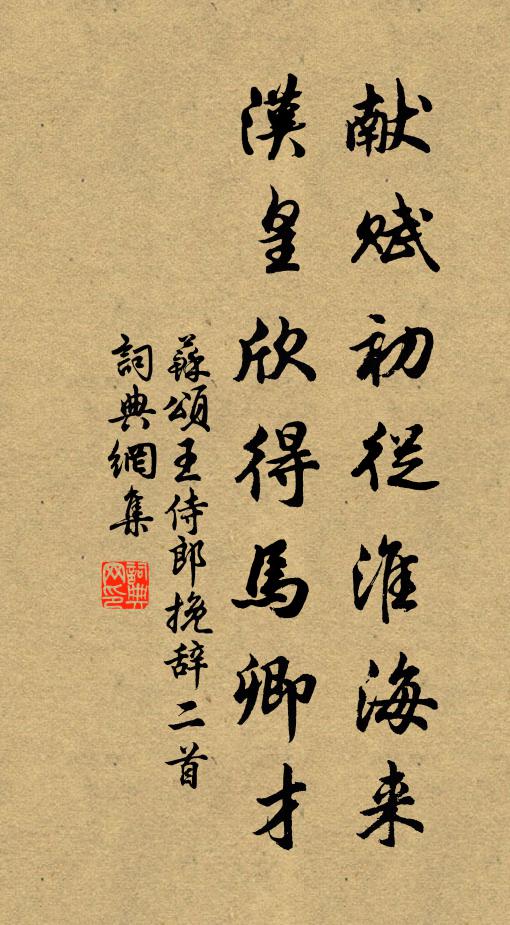 献赋初從淮海来
漢皇欣得馬卿才
蘇頌王侍郎挽辞二首
詞典網集
詞典网印